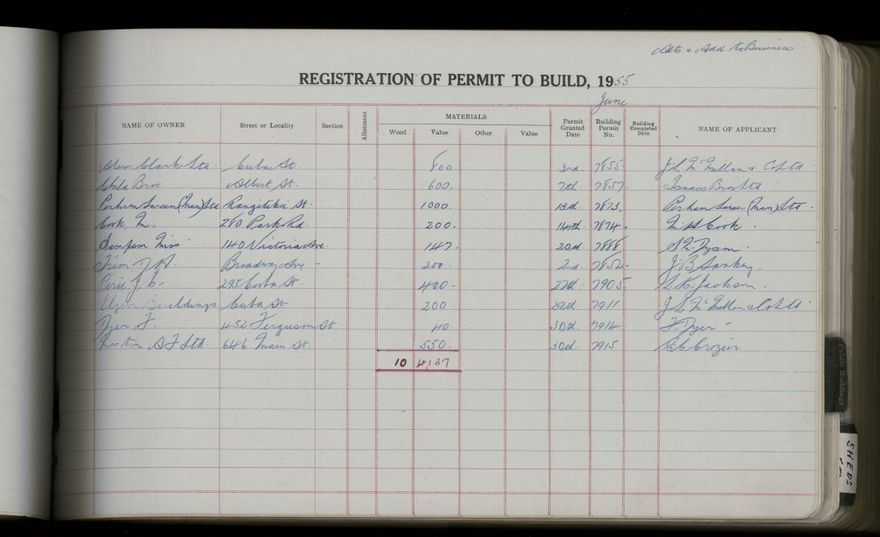 Alts. & Add to Business
REGISTRATION OF PERMIT TO BUILD, 1955
June
NAME OF OWNER Street or Locality Section Allotment MATERIALS Wood Value Other Value Permit Granted Date Building Permit No. Building Completed Date NAME OF APPLICANT
Clark Ltd Cuba St. 800 3rd 7855 J L McMillan & Co Ltd
Childs Bros Albert St. 600. 7th 7857 Isaacs Bros Ltd
(Man) Ltd Rangitikei St. 1000 13th 7873 (Man) Ltd
Cook, M. 280 Park Rd 200. 14th 7874 M H Cook
Sampson Miss 140 Victoria Ave 147. 20th 7888
Broadway Ave 200 2nd 7852 J B Sankey
Pirie J. C. 295 Cuba St 400 27th 7905 Jackson
Buildings Cuba St 200 29th 7911 J L McMillan & Co Ltd
Dyer F. 452 Ferguson St 40 30th 7914 F Dyer
Ltd 646 Main St. 550. 30th 7915 Crozier
10 4137
SHEDS